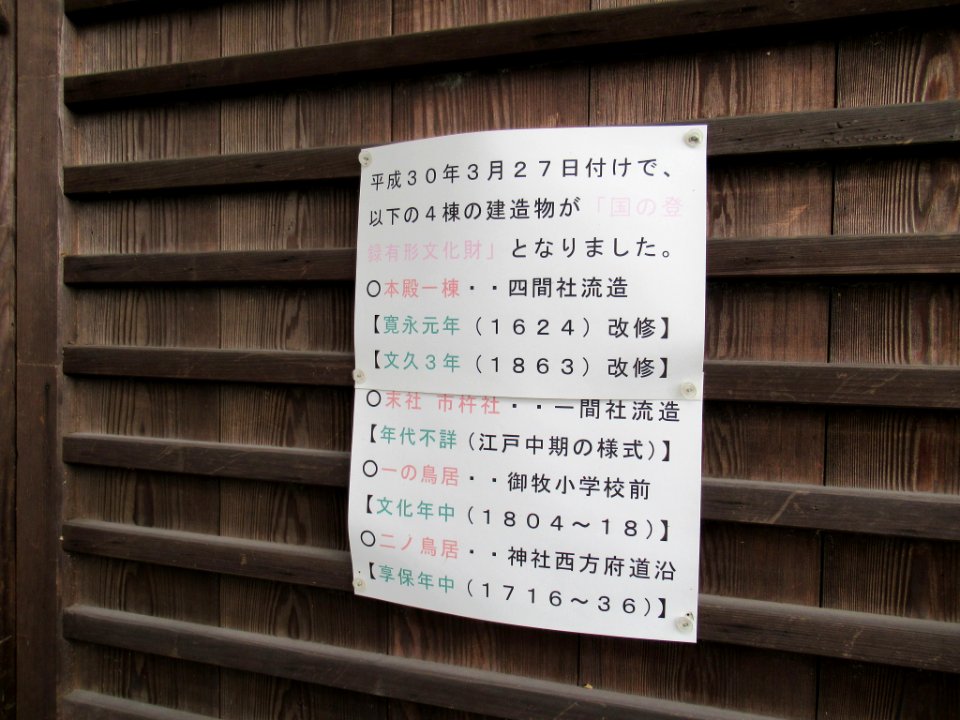 平成３０年３月２７日付けで、
以下の４棟の建造物が「国の登
録有形文化財」となりました。
○本殿一棟・・四間社流造
【寛永元年（１６２４）改修】
【文久３年（１８６３）改修】
○末社 市杵社・・一間社流造
【年代不詳（江戸中期の様式）】
○一の鳥居・・御牧小学校前
【文化年中（１８０４～１８）】
○二ノ鳥居・・神社西方府道沿
【享保年中（１７１６～３６）】